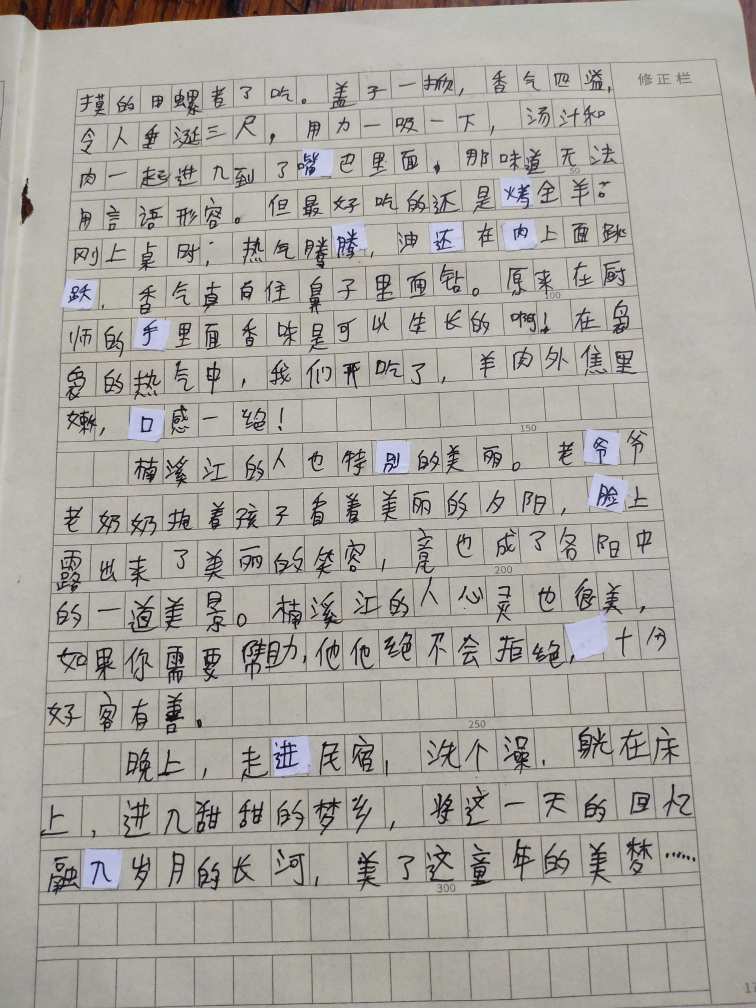 摸的用螺者了吃。盖子一掀，香气四溢，
修正栏
令人垂涎三尺，用力一吸一下，汤汁和
肉一起进入到了嘴巴里面，那味道无法
50
用言语形容。但最好吃的还是烤全羊。
刚上桌时，热气腾腾，油还在肉上面跳
跃，香气真自往鼻子里面钻。原来在厨
100
师的手里面香味是可以生长的啊！在袅
袅的热气中，我们开吃了，羊肉外焦里
嫩，口感一绝！
150
楠溪江的人也特别的美丽。老爷爷
老奶奶抱着孩子看着美丽的夕阳，脸上
露出来了美丽的笑容，竟也成了名阳中
200
的一道美景。楠溪江的人心灵也很美，
如果你需要帮助，他他绝不会拒绝，十分
好客有善。
250
晚上，走进民宿，洗个澡，躺在床
上，进入甜甜的梦乡，将这一天的回忆
融入岁月的长河，美了这童年的美梦……
300